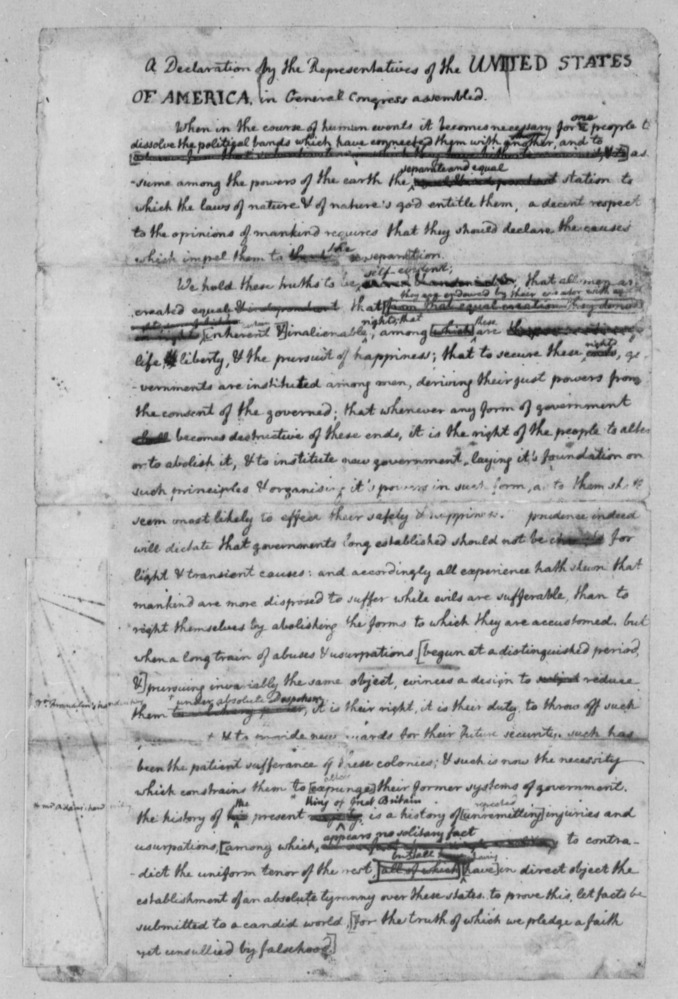 A Declaration by the Representatives of the UNITED STATES
OF AMERICA, in General Congress assembled.
When in the course of human events it becomes necessary for one people to
dissolve the political bands which have connected them with another, and to
as
-sume among the powers of the earth the separate and equal station to
which the laws of nature & of nature's god entitle them, a decent respect
to the opinions of mankind requires that they should declare the causes
which impel them to the separation.
We hold these truths to be self-evident; that all men are
created equal that they are endowed by their creator with
inherent & inalienable rights; that among these are
life, liberty, & the pursuit of happiness; that to secure these rights, go
-vernments are instituted among men, deriving their just powers from
the consent of the governed; that whenever any form of government
becomes destructive of these ends, it is the right of the people to alter
or to abolish it, & to institute new government, laying it's foundation on
such principles & organising it's powers in such form, as to them shall
seem most likely to effect their safety & happiness. prudence indeed
will dictate that governments long established should not be for
light & transient causes: and accordingly all experience hath shewn that
mankind are more disposed to suffer while evils are sufferable, than to
right themselves by abolishing the forms to which they are accustomed. but
when a long train of abuses & usurpations [begun at a distinguished period,
&] pursuing invariably the same object, evinces a design to reduce
them under absolute Despotism, it is their right, it is their duty, to throw off such
& to provide new guards for their future security. such has
been the patient sufferance of these colonies; & such is now the necessity
which constrains them to [expunge] their former systems of government.
the history of the present king of Great Britain is a history of [unremitting] repeated injuries and
usurpations, [among which, appears no solitary fact to contra-
-dict the uniform tenor of the rest, but all [have] in direct object the
establishment of an absolute tyranny over these states. to prove this, let facts be
submitted to a candid world, [for the truth of which we pledge a faith
yet unsullied by falsehood]